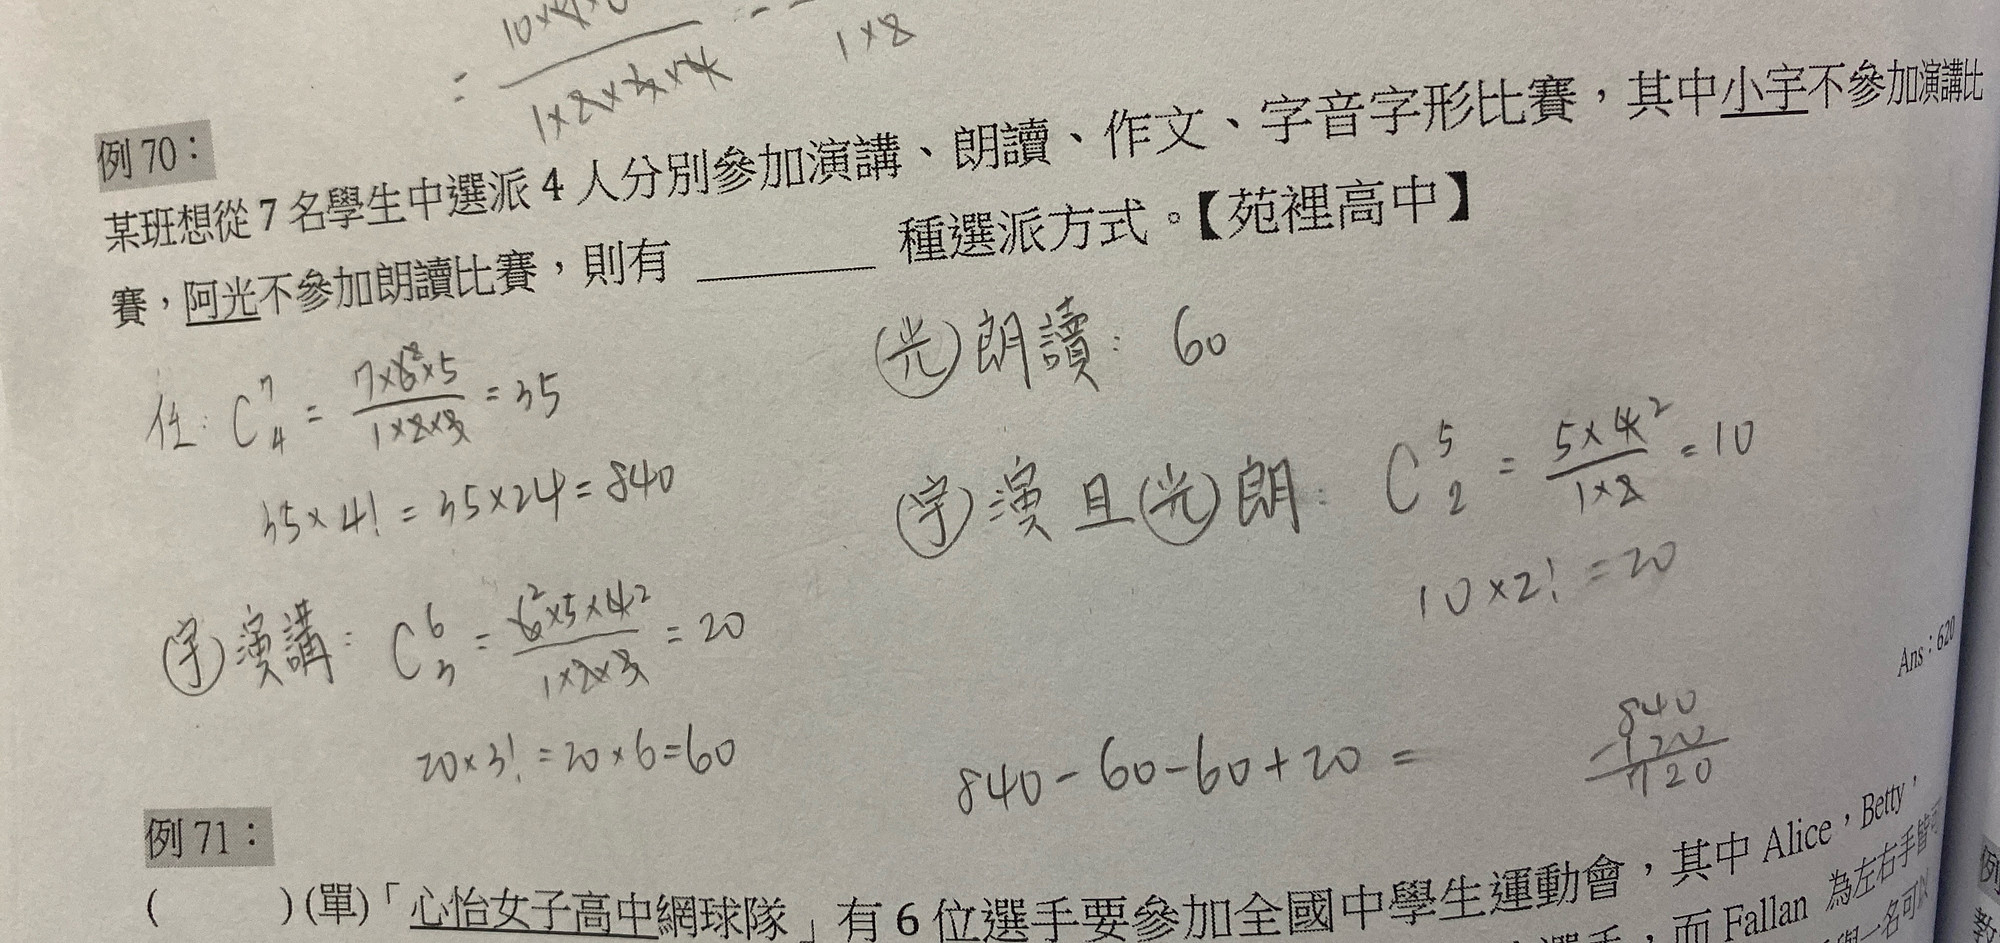 = 10×4×
1×2×3×4
1×8
例 70：
某班想從 7 名學生中選派 4 人分別參加演講、朗讀、作文、字音字形比賽，其中小宇不參加演講比
賽，阿光不參加朗讀比賽，則有 ______ 種選派方式。【苑裡高中】
任: C⁷₄ = 7×6²×5 / 1×2×3 = 35
35×4! = 35×24 = 840
宇 演講: C⁶₃ = 6²×5×4² / 1×2×3 = 20
20×3! = 20×6=60
光 朗讀: 60
宇 演 且 光 朗: C⁵₂ = 5×4² / 1×2 = 10
10×2! = 20
Ans：620
840-60-60+20 =
840
-120
720
例 71：
( )(單)「心怡女子高中網球隊」有 6 位選手要參加全國中學生運動會，其中 Alice，Betty，
選手，而 Fallan 為左右手皆可
一名可以
例
教